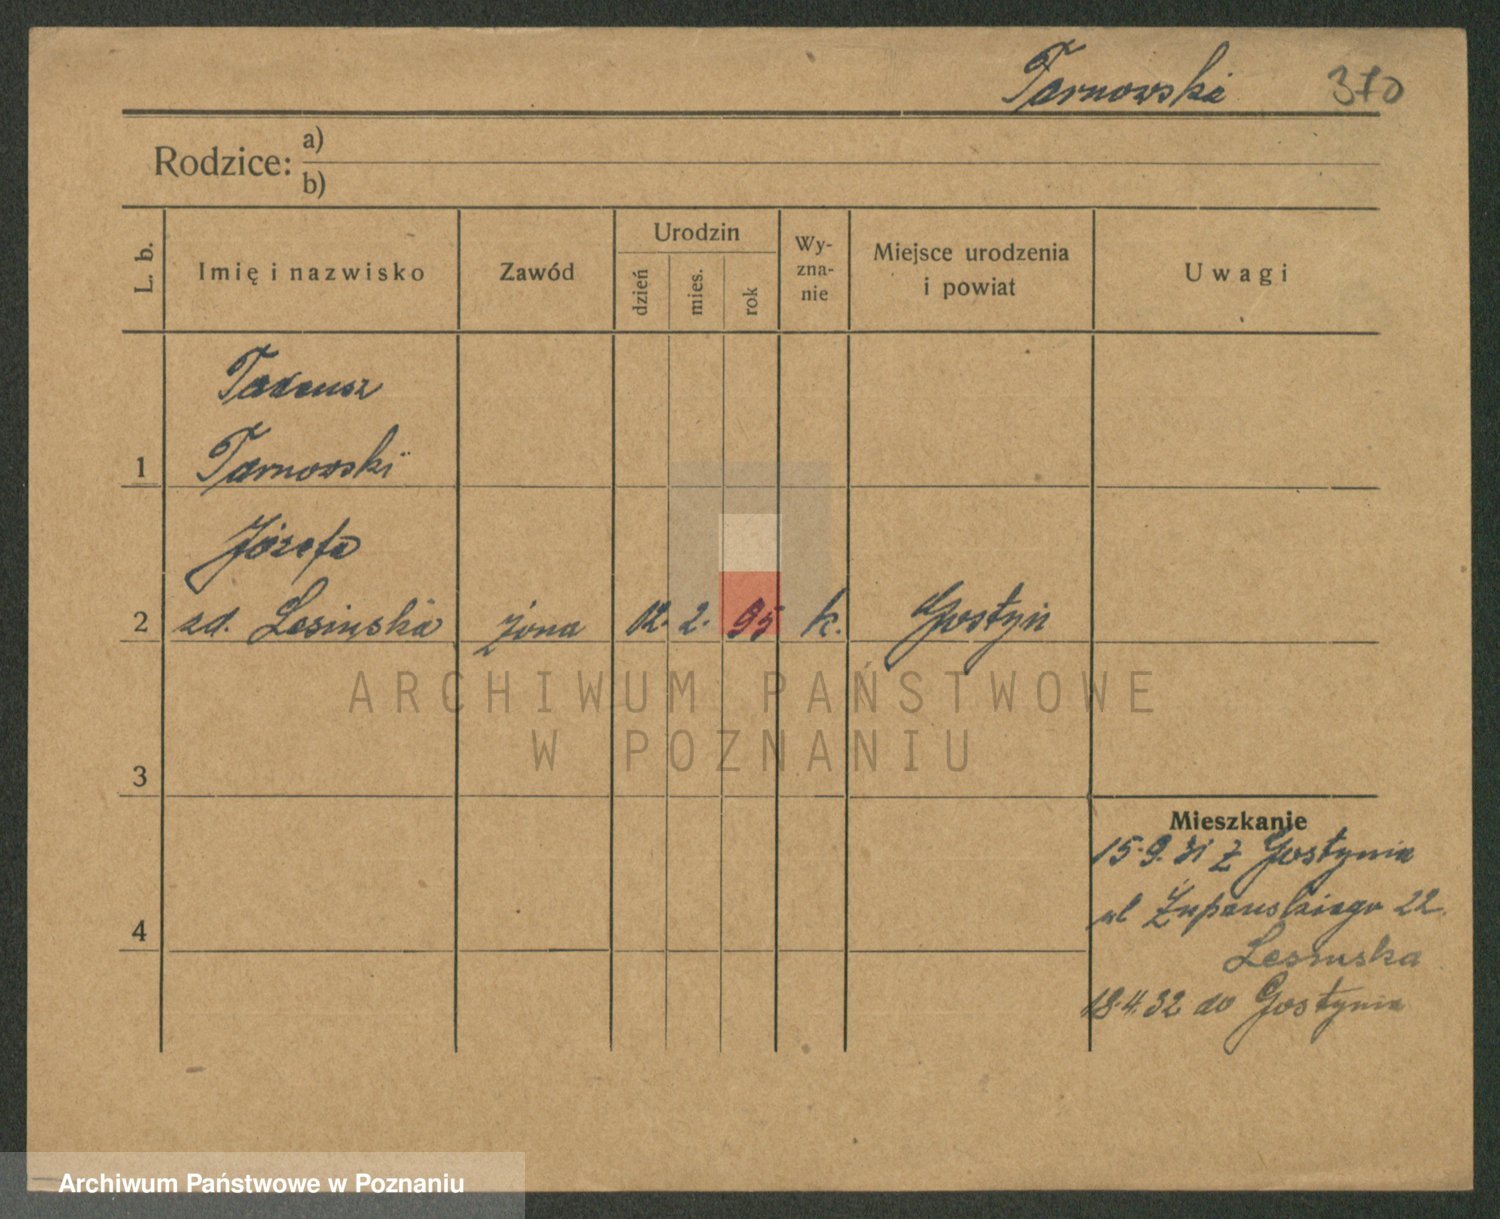 Tarnowski 370
Rodzice: a)
b)
L. b.
Imię i nazwisko
Zawód
Urodzin
dzień
mies.
rok
Wy-
zna-
nie
Miejsce urodzenia
i powiat
Uwagi
Tadeusz
1 Tarnowski
Józefa
2 zd. Lesińska żona 12. 2. 95 k. Gostyń
ARCHIWUM PAŃSTWOWE
W POZNANIU
3
Mieszkanie
15.9.31 z Gostynia
ul Żupańskiego 22.
4
Lesińska
18.4.32 do Gostynia
Archiwum Państwowe w Poznaniu